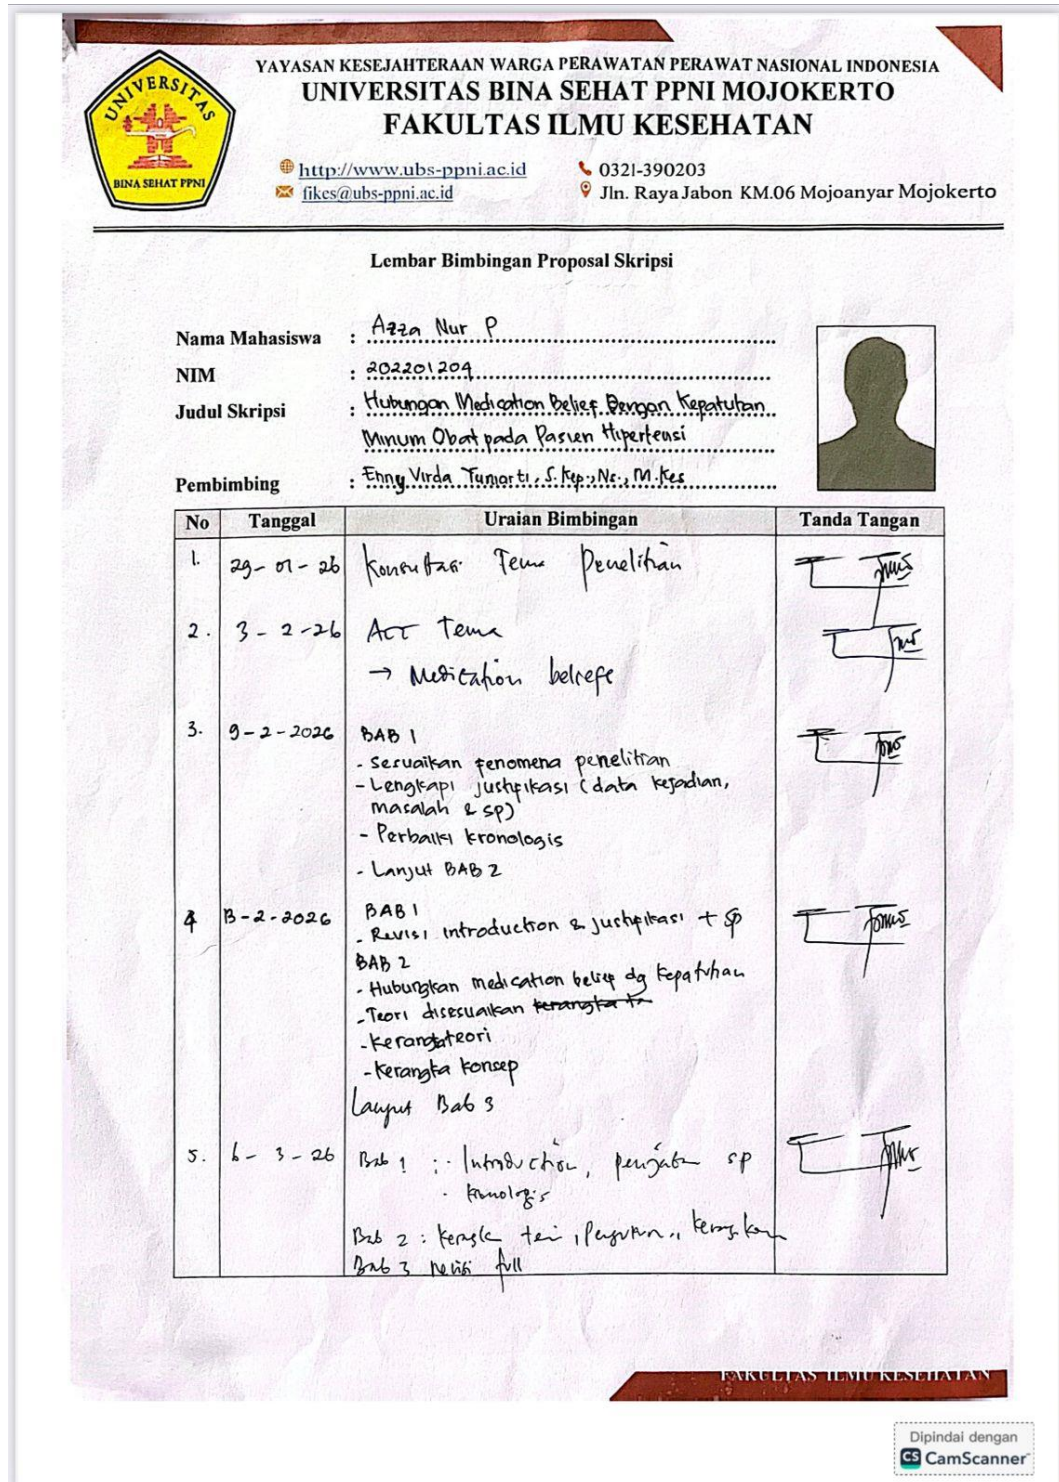 YAYASAN KESEJAHTERAAN WARGA PERAWATAN PERAWAT NASIONAL INDONESIA
UNIVERSITAS BINA SEHAT PPNI MOJOKERTO
FAKULTAS ILMU KESEHATAN
UNIVERSITAS
BINA SEHAT PPNI
http://www.ubs-ppni.ac.id 0321-390203
fikes@ubs-ppni.ac.id Jln. Raya Jabon KM.06 Mojoanyar Mojokerto
Lembar Bimbingan Proposal Skripsi
Nama Mahasiswa : Azza Nur P
NIM : 202201204
Judul Skripsi : Hubungan Medication Belief Dengan Kepatuhan
Minum Obat pada Pasien Hipertensi
Pembimbing : Enny Virda Yuniarti, S.Kep.,Ns., M.Kes
No Tanggal Uraian Bimbingan Tanda Tangan
1. 29-01-26 Konsultasi Tema Penelitian
2. 3-2-26 ACC Tema
→ Medication beliefe
3. 9-2-2026 BAB 1
- Sesuaikan fenomena penelitian
- Lengkapi justifikasi (data kejadian,
masalah & sp)
- Perbaiki kronologis
- Lanjut BAB 2
4 13-2-2026 BAB 1
- Revisi introduction & justifikasi + sp
BAB 2
- Hubungkan medication belief dg kepatuhan
- Teori disesuaikan
- kerangka teori
- kerangka konsep
Lanjut Bab 3
5. 6-3-26 Bab 1 : · Introduction, sp
· kronologis
Bab 2 :
Bab 3 revisi full
FAKULTAS ILMU KESEHATAN
Dipindai dengan
CS CamScanner